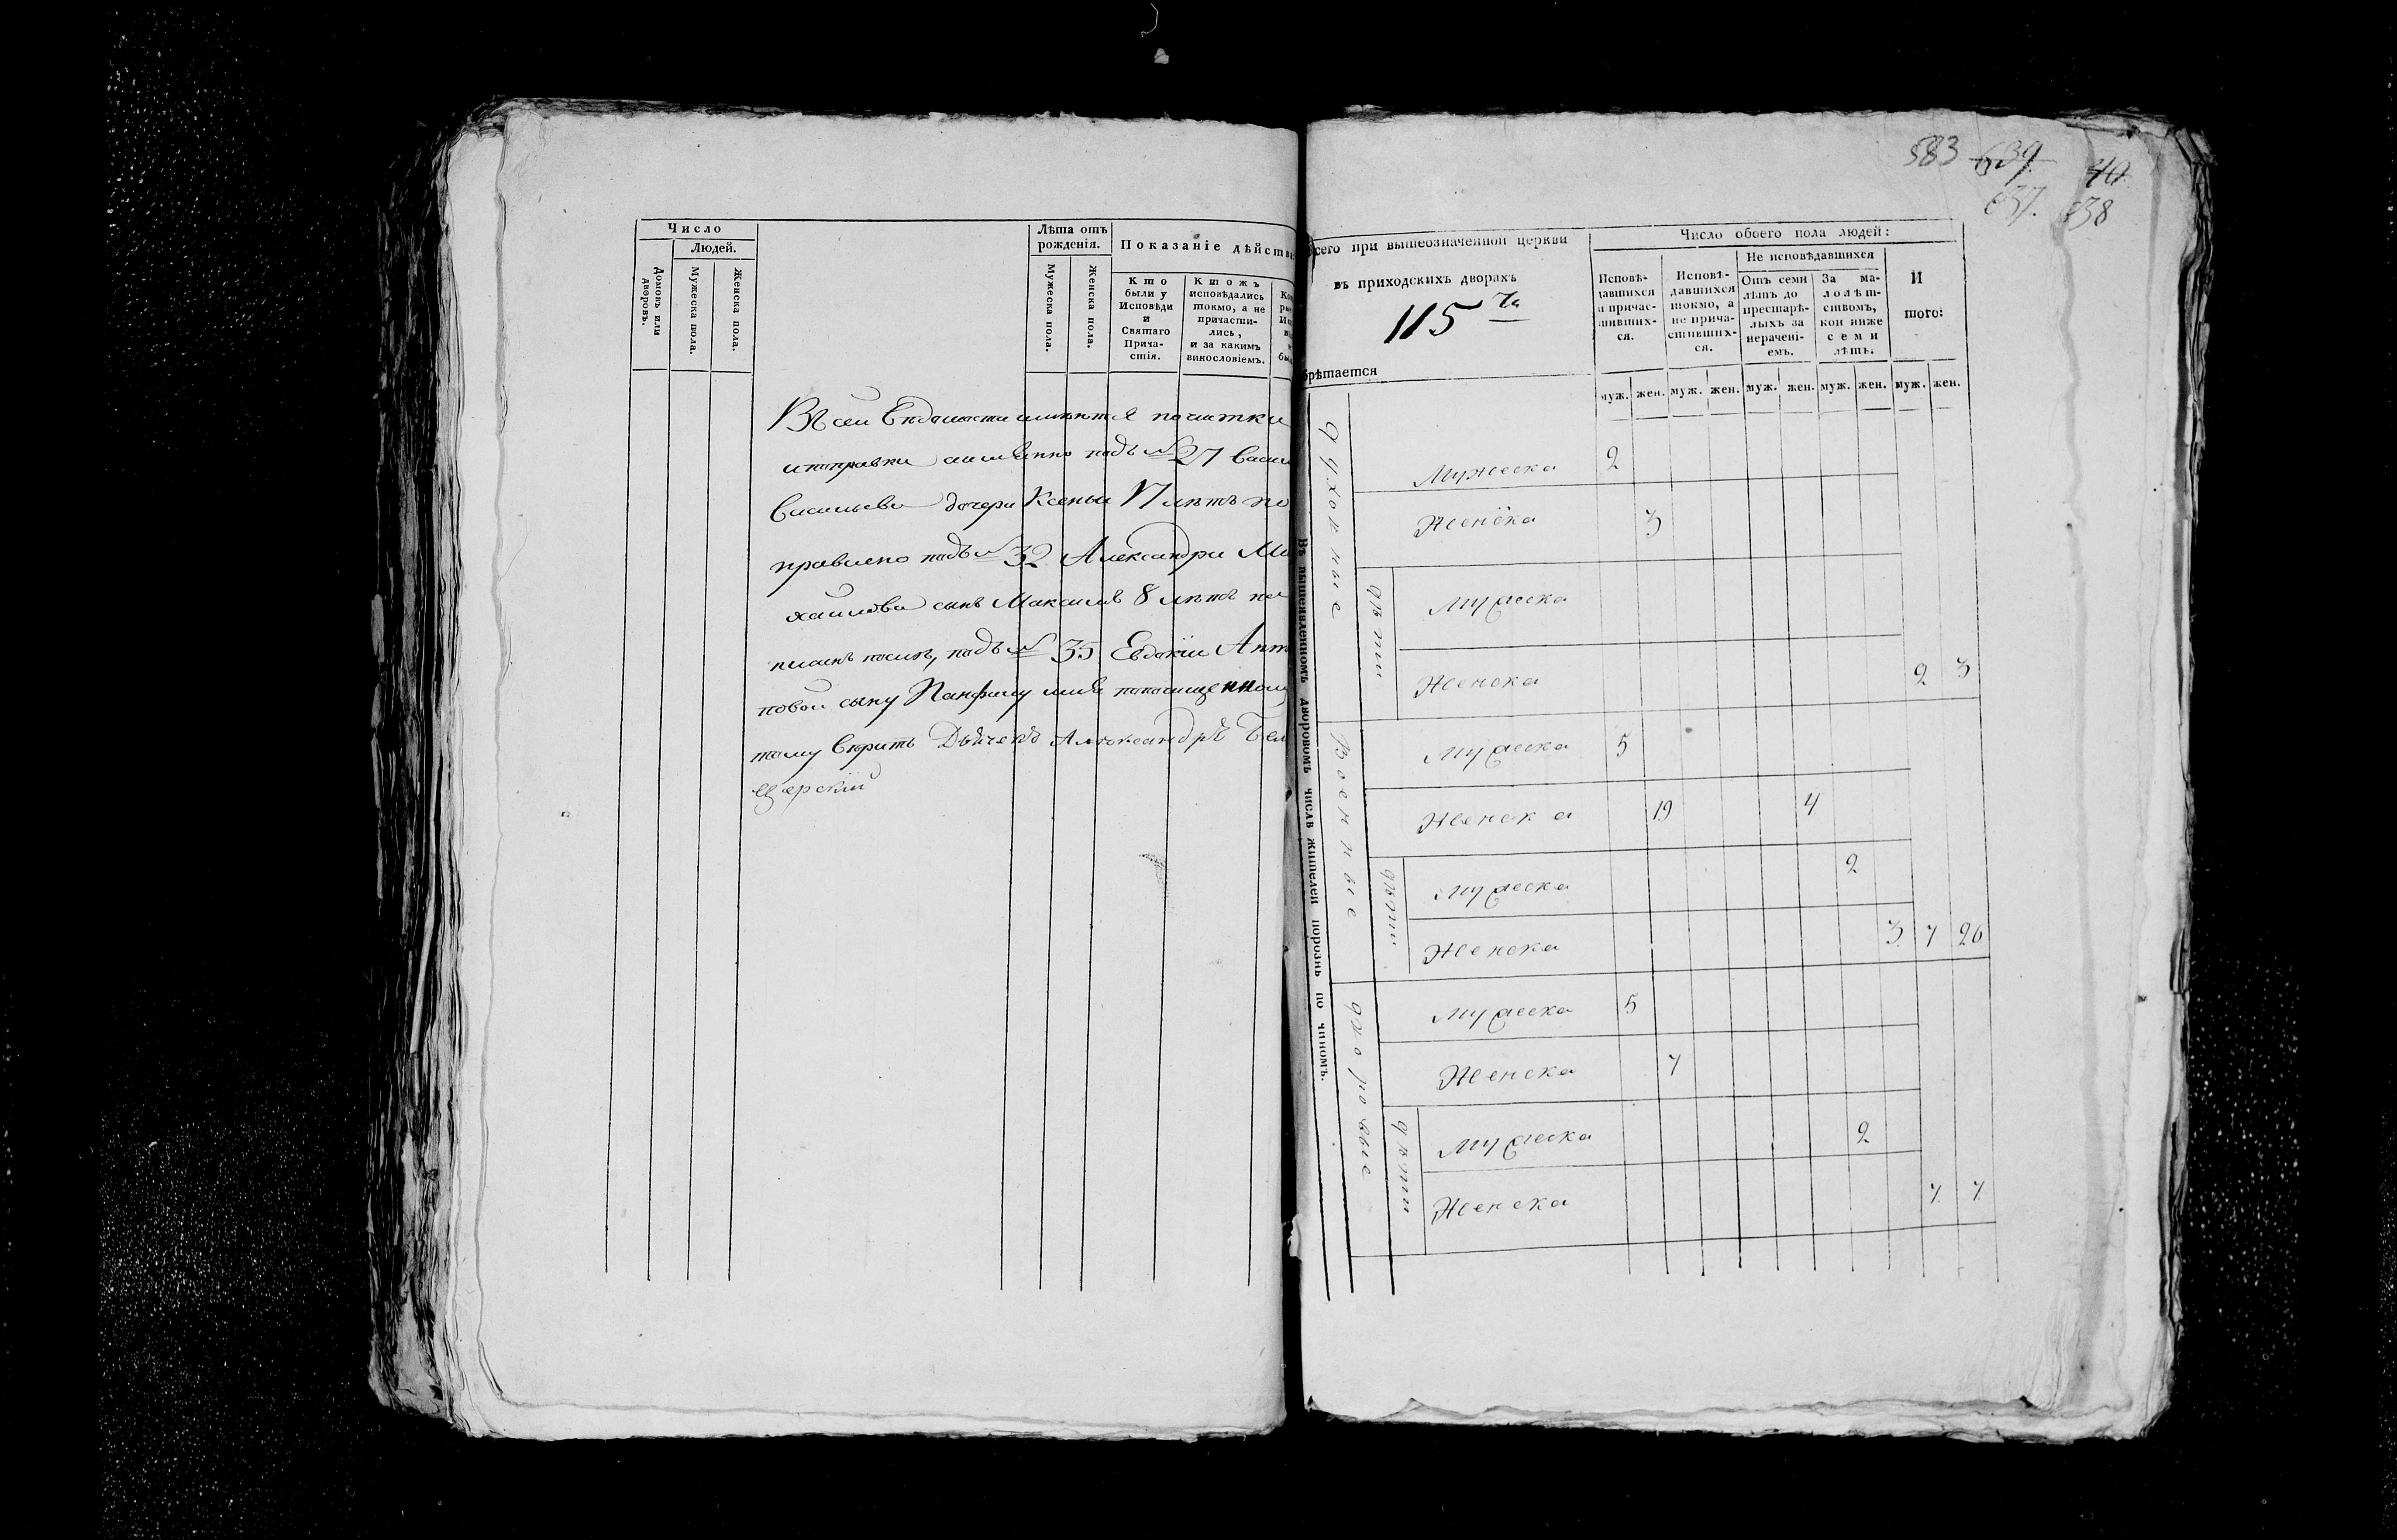 Число
Людей.
Домовъ или дворовъ.
Мужеска пола.
Женска пола.
Лѣта отъ рожденія.
Мужеска пола.
Женска пола.
Показаніе дѣйств
Кто были у Исповѣди и Святаго Причастія.
Ктожъ исповѣдались токмо, а не причастились, и за какимъ винословіемъ.
Въ сей Вѣдомости имѣются почистки
и поправки а имѣнно подъ № 27 Васи
Васильева дочери Ксеньи 17 лѣтъ по
правлено подъ № 32 Александра Ми
хайлова сынъ Максимъ 8 лѣтъ на
подъ № 35 Евдокіи Ант
повой сыну Панфилу
тому вѣрить Дьячекъ Александръ Бел
церскій
583 639. 40
637. 638
сего при вышеозначенной церкви
въ приходскихъ дворахъ
115
брѣтается
Число обоего пола людей:
Исповѣдавшихся и причастившихся.
Исповѣдавшихся токмо, а не причастившихся.
Не исповѣдавшихся
Отъ семи лѣтъ до престарѣлыхъ за нераченіемъ.
За малолѣтствомъ, кои ниже семи лѣтъ:
И того:
муж. жен. муж. жен. муж. жен. муж. жен. муж. жен.
Въ вышеявленномъ дворовомъ числѣ жителей порознь по чиномъ.
Духовные
Мужеска 2
Женска 3
дѣти
Мужеска
Женска 2 3
Военные
Мужеска 5
Женска 19 4
дѣти
Мужеска 2
Женска 3 7 26
Дворовые
Мужеска 5
Женска 7
дѣти
Мужеска 2
Женска 7 7